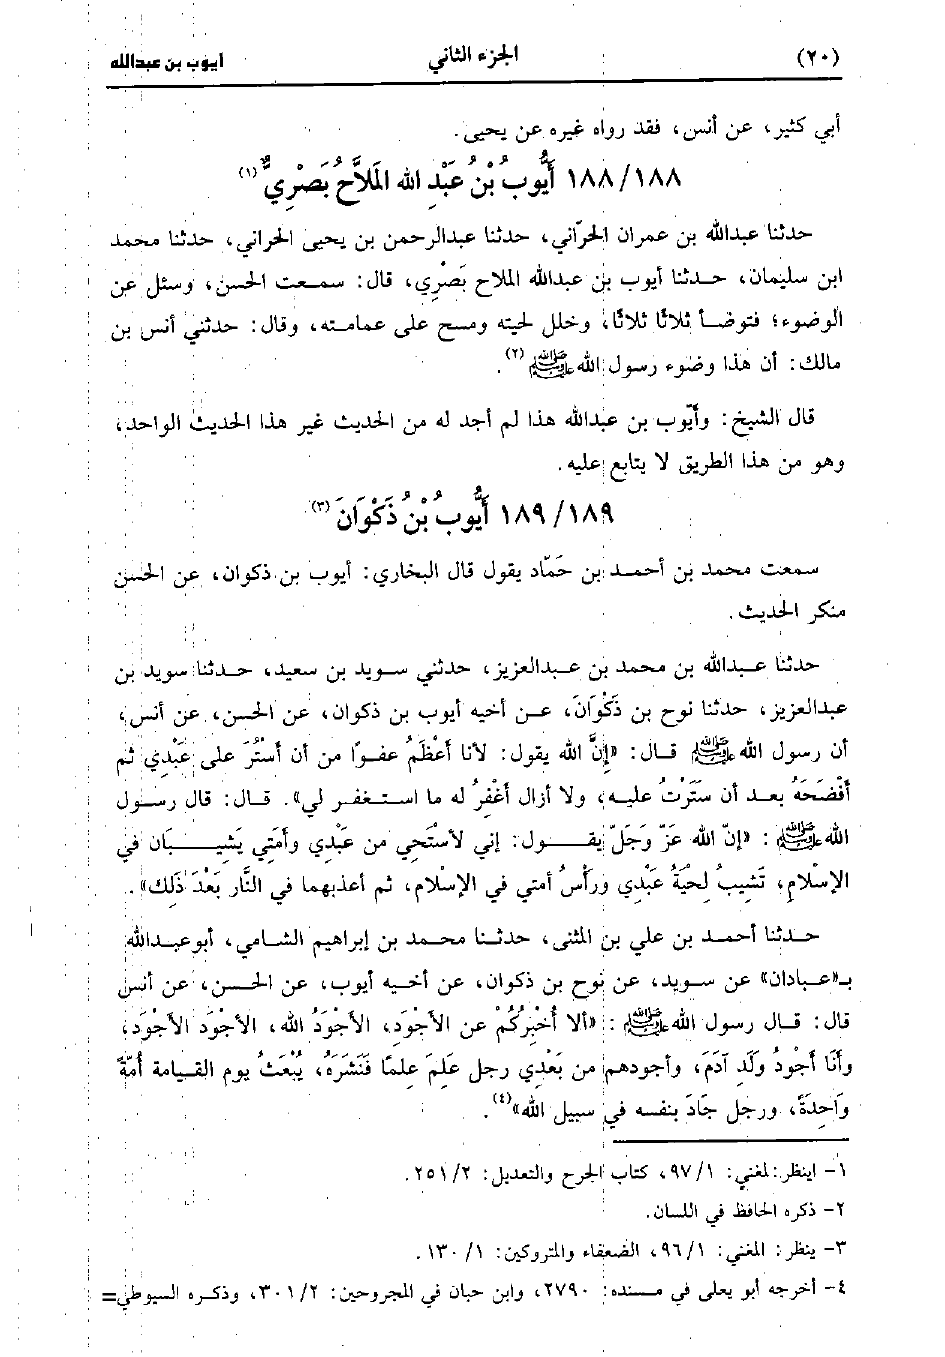 (٢٠) الجزء الثاني أيوب بن عبدالله
أبي كثير، عن أنس، فقد رواه غيره عن يحيى.
١٨٨/١٨٨ أَيُّوبُ بْنُ عَبْدِ الله المَلاَّحُ بَصْرِيٌّ(١)
حدثنا عبدالله بن عمران الحرّاني، حدثنا عبدالرحمن بن يحيى الحراني، حدثنا محمد
ابن سليمان، حدثنا أيوب بن عبدالله الملاح بَصْرِي، قال: سمعت الحسن، وسئل عن
الوضوء؛ فتوضأ ثلاثًا ثلاثًا، وخلل لحيته ومسح على عمامته، وقال: حدثني أنس بن
مالك: أن هذا وضوء رسول الله ﷺ(٢).
قال الشيخ: وأيّوب بن عبدالله هذا لم أجد له من الحديث غير هذا الحديث الواحد،
وهو من هذا الطريق لا يتابع عليه.
١٨٩/١٨٩ أَيُّوبُ بْنُ ذَكْوَانَ(٣)
سمعت محمد بن أحمد بن حَمّاد يقول قال البخاري: أيوب بن ذكوان، عن الحسن
منكر الحديث.
حدثنا عبدالله بن محمد بن عبدالعزيز، حدثني سويد بن سعيد، حدثنا سويد بن
عبدالعزيز، حدثنا نوح بن ذَكْوَانَ، عن أخيه أيوب بن ذكوان، عن الحسن، عن أنس،
أن رسول الله ﷺ قال: «إِنَّ الله يقول: لأنا أَعْظَمُ عفوًا من أن أَسْتُرَ على عَبْدِي ثم
أَفْضَحَهُ بعد أن سَتَرْتُ عليه، ولا أزال أَغْفِرُ له ما استغفر لي». قال: قال رسول
الله ﷺ: «إنّ الله عَزّ وَجَلّ يقول: إني لأسْتَحِي من عَبْدِي وأَمَتِي يَشِيبَان في
الإسْلام، تَشِيبُ لحيَةُ عَبْدِي ورَأْسُ أمتي في الإسْلام، ثم أعذبهما في النَّار بَعْدَ ذَلِكَ».
حدثنا أحمد بن علي بن المثنى، حدثنا محمد بن إبراهيم الشامي، أبو عبدالله
بـ«عبادان» عن سويد، عن نوح بن ذكوان، عن أخيه أيوب، عن الحسن، عن أنس
قال: قال رسول الله ﷺ: «ألا أُخْبِرُكُمْ عن الأَجْوَدِ، الأَجْوَدُ الله، الأَجْوَد الأَجْوَد،
وأَنَا أَجْودُ ولَدِ آدَمَ، وأجودهم من بَعْدِي رجل عَلِمَ علمًا فَنَشَرَهُ، يُبْعَثُ يوم القيامة أُمّةً
وَاحِدَةً، ورجل جَادَ بنفسه في سبيل الله»(٤).
١- اينظر: لمغني: ٩٧/١، كتاب الجرح والتعديل: ٢٥١/٢.
٢- ذكره الحافظ في اللسان.
٣- ينظر: المغني: ٩٦/١، الضعفاء والمتروكين: ١٣٠/١.
٤- أخرجه أبو يعلى في مسنده: ٢٧٩٠، وابن حبان في المجروحين: ٣٠١/٢، وذكره السيوطي=